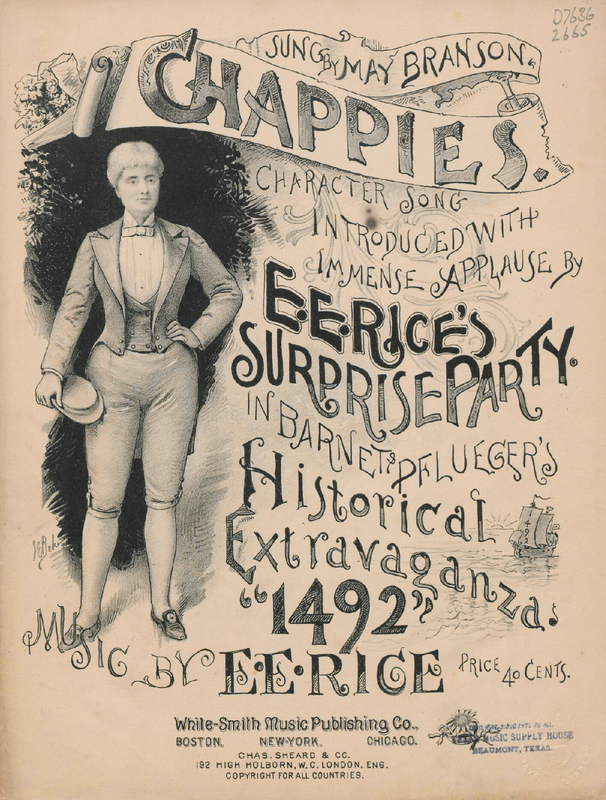 07686
2665
SUNG BY MAY BRANSON.
CHAPPIES.
CHARACTER SONG
INTRODUCED WITH
IMMENSE APPLAUSE BY
E.E. RICE'S
SURPRISE PARTY.
IN BARNET & PFLUEGER'S
Historical
Extravaganza:
"1492"
MUSIC BY E.E. RICE
PRICE 40 CENTS.
White-Smith Music Publishing Co.,
BOSTON. NEW-YORK. CHICAGO.
CHAS. SHEARD & CO.
192 HIGH HOLBORN, W.C. LONDON, ENG.
COPYRIGHT FOR ALL COUNTRIES.
MUSIC SUPPLY HOUSE
BEAUMONT, TEXAS.